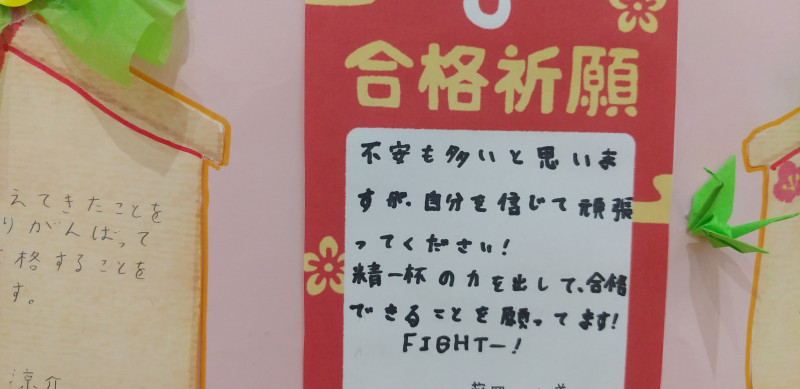 えてきたことを
りがんばって
格することを
す。
涼介
合格祈願
不安も多いと思いま
すが、自分を信じて頑張
ってください!
精一杯の力を出して、合格
できることを願ってます!
FIGHTー!